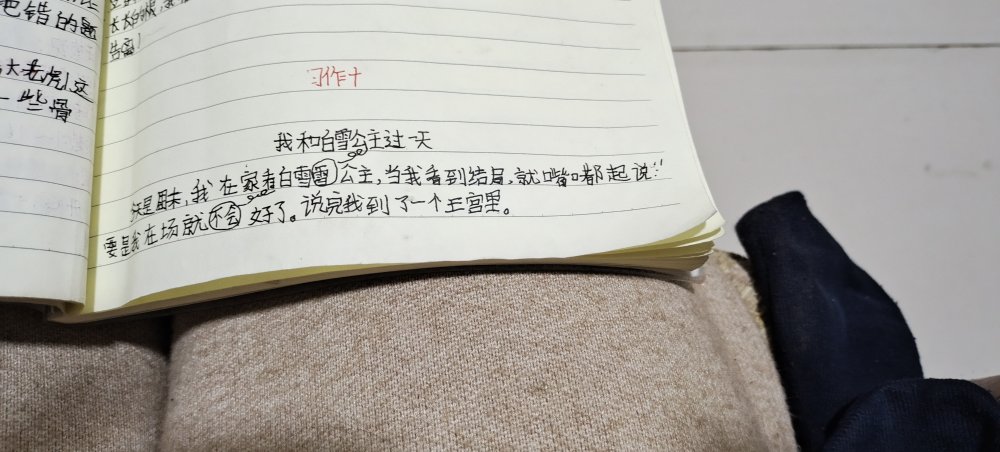 也错的题
大老虎这
一些骨
告富）
习作十
我和白雪公主过一天
天是周末，我在家看白雪雪公主，当我看到结局，就嘴都起说：“
要是我在场就不会好了。说完我到了一个王宫里。